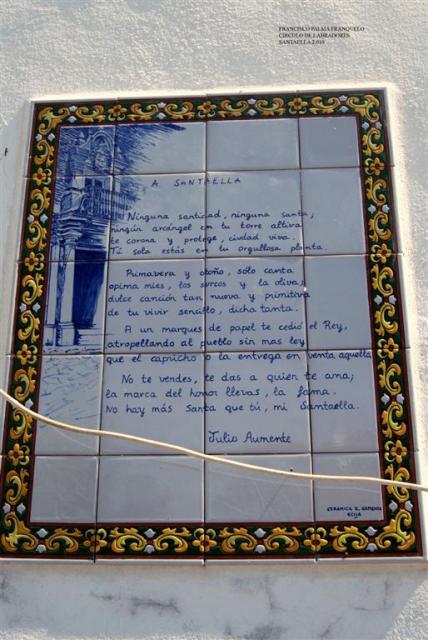 FRANCISCO PALMA FRANQUELO
CIRCULO DE LABRADORES
SANTAELLA 2.010
A SANTAELLA
Ninguna santidad, ninguna santa,
ningún arcángel en tu torre altiva
te corona y protege, ciudad viva.
Tú sola estás en tu orgullosa planta.
Primavera y otoño, sólo canta
opima mies, los surcos y la oliva,
dulce canción tan nueva y primitiva
de tu vivir sencillo, dicha tanta.
A un marques de papel te cedió el Rey,
atropellando al pueblo sin mas ley
que el capricho o la entrega en venta aquella
No te vendes, te das a quien te ama;
la marca del honor llevas, la fama.
No hay más Santa que tú, mi Santaella.
Julio Aumente
CERAMICA
ECIJA